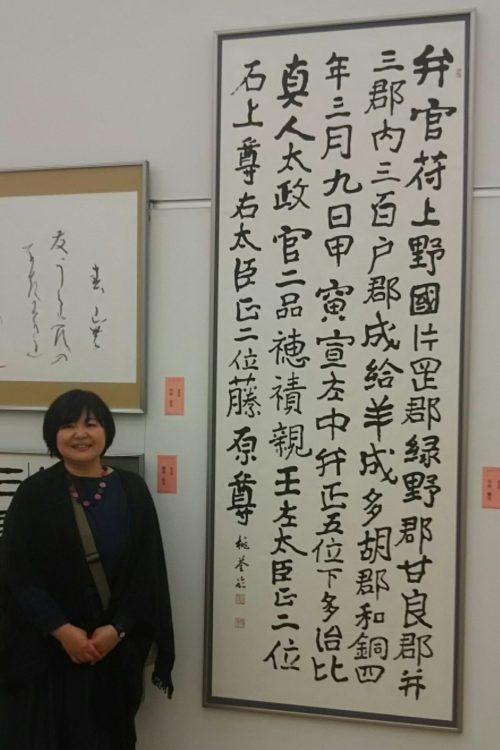 弁官苻上野國片罡郡緑野郡甘良郡并
三郡内三百戸郡成給羊成多胡郡和銅四
年三月九日甲寅宣左中弁正五位下多治比
真人太政官二品穂積親王左太臣正二位
石上尊右太臣正二位藤原尊